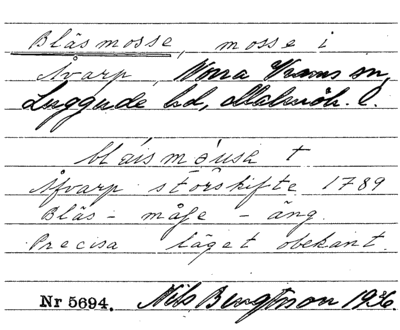 Bläsmosse, mosse i
Åvarp, Norra Vrams sn,
Luggude hd, Malmöh. l.
bláismòusa t
Åfvarp storskifte 1789
Bläs - måsse - äng.
Precisa läget obekant.
Nr 5694. Nils Bengtsson 1936.